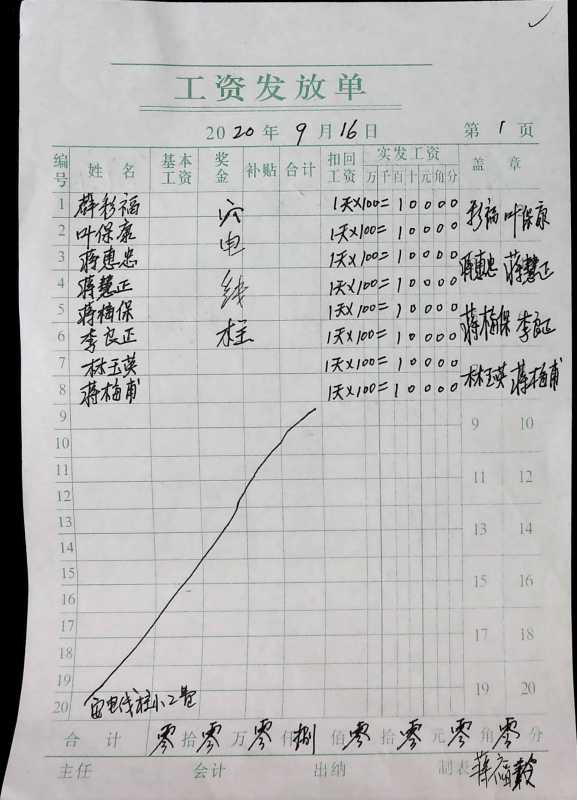 工资发放单
2020年9月16日 第1页
编号 姓名 基本工资 奖金 补贴 合计 扣回工资 实发工资 万千百十元角分 盖章
1 薛彩福 穴 1天×100= 10000 彩福 叶保康
2 叶保康 电 1天×100= 10000
3 蒋惠忠 1天×100= 10000 蒋惠忠 蒋慧正
4 蒋慧正 线 1天×100= 10000
5 蒋梅保 1天×100= 10000 蒋梅保 李良正
6 李良正 柱 1天×100= 10000
7 林玉英 1天×100= 10000 林玉英 蒋梅甫
8 蒋梅甫 1天×100= 10000
9 9 10
10
11 11 12
12
13 13 14
14
15 15 16
16
17 17 18
18
19 19 20
20 电线柱小工费
合计 零拾零万零仟捌佰零拾零元零角零分
主任 会计 出纳 制表 蒋